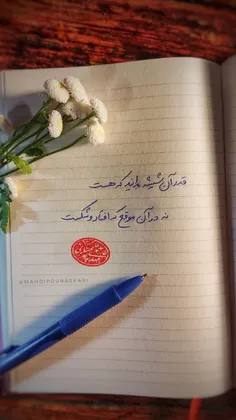 قدر آن شیشه بدانید که هست
نه در آن موقع که افتاد و شکست
@MAHDIPOURASKARI